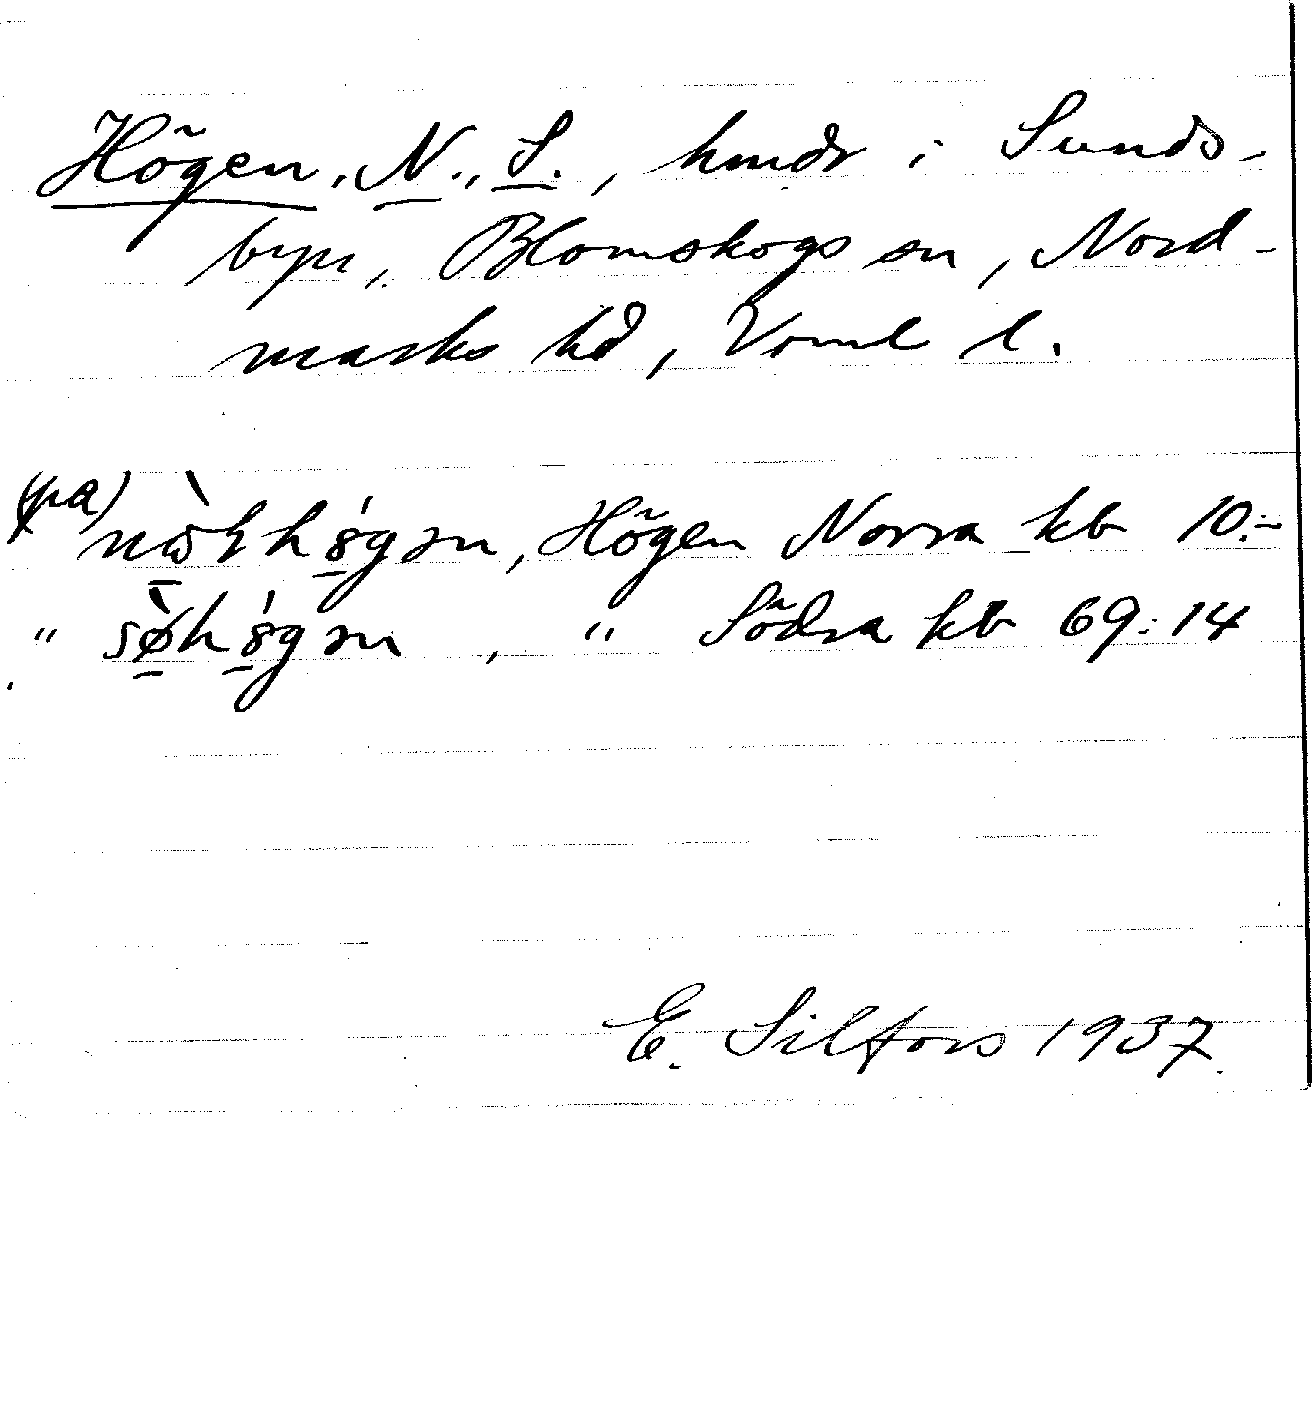 Högen, N., S., hmdr i Sunds-
byn, Blomskogs sn, Nord-
marks hd, Vrml l.
(pa)
Högen Norra kb 10:-
" , " Södra kb 69:14
E. Silfors 1937.